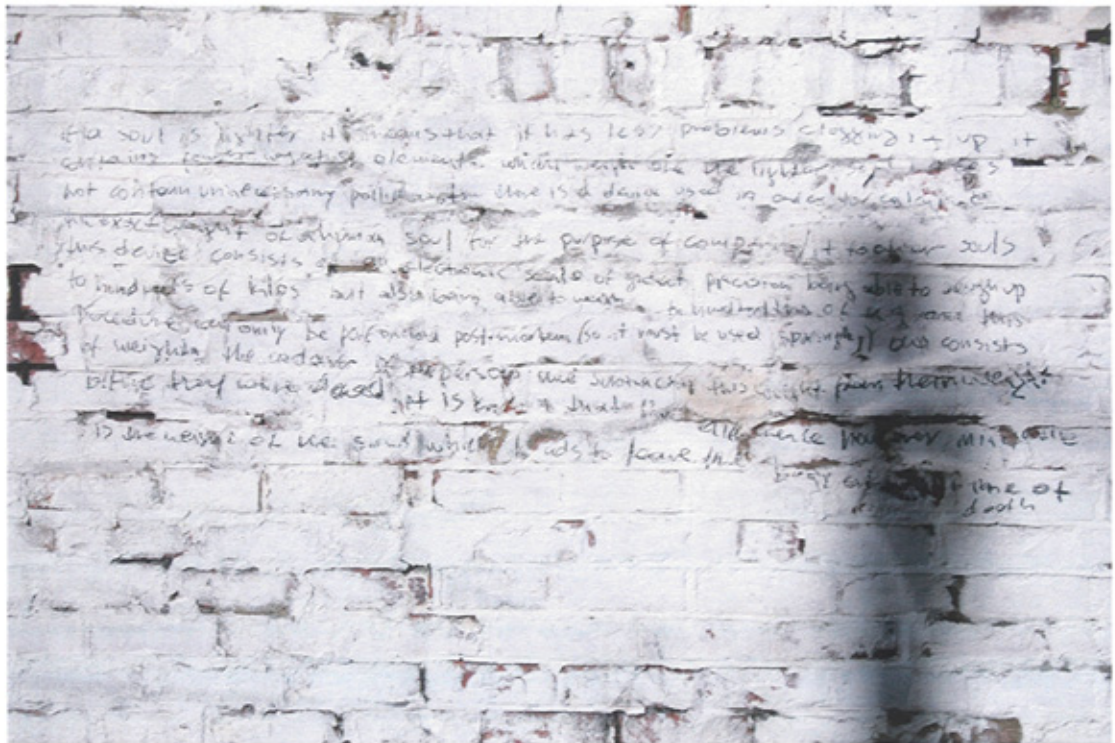 if a soul is lighter it means that it has less problems clogging it up it
contains fewer negative elements which weigh one the lighter soul does
not contain unnecessary pollutants there is a device used in order to calculate
the exact weight of a human soul for the purpose of comparing it to other souls
this device consists of an electronic scale of great precision being able to weigh up
to hundreds of kilos but also being able to weigh to hundredths of kg and this
procedure can only be performed post-mortem (so it must be used sparingly) and consists
of weighing the cadaver of the person and subtracting this weight from their weight
before they were deceased it is known that
difference however miniscule
is the weight of the soul which tends to leave the
body at time of
death